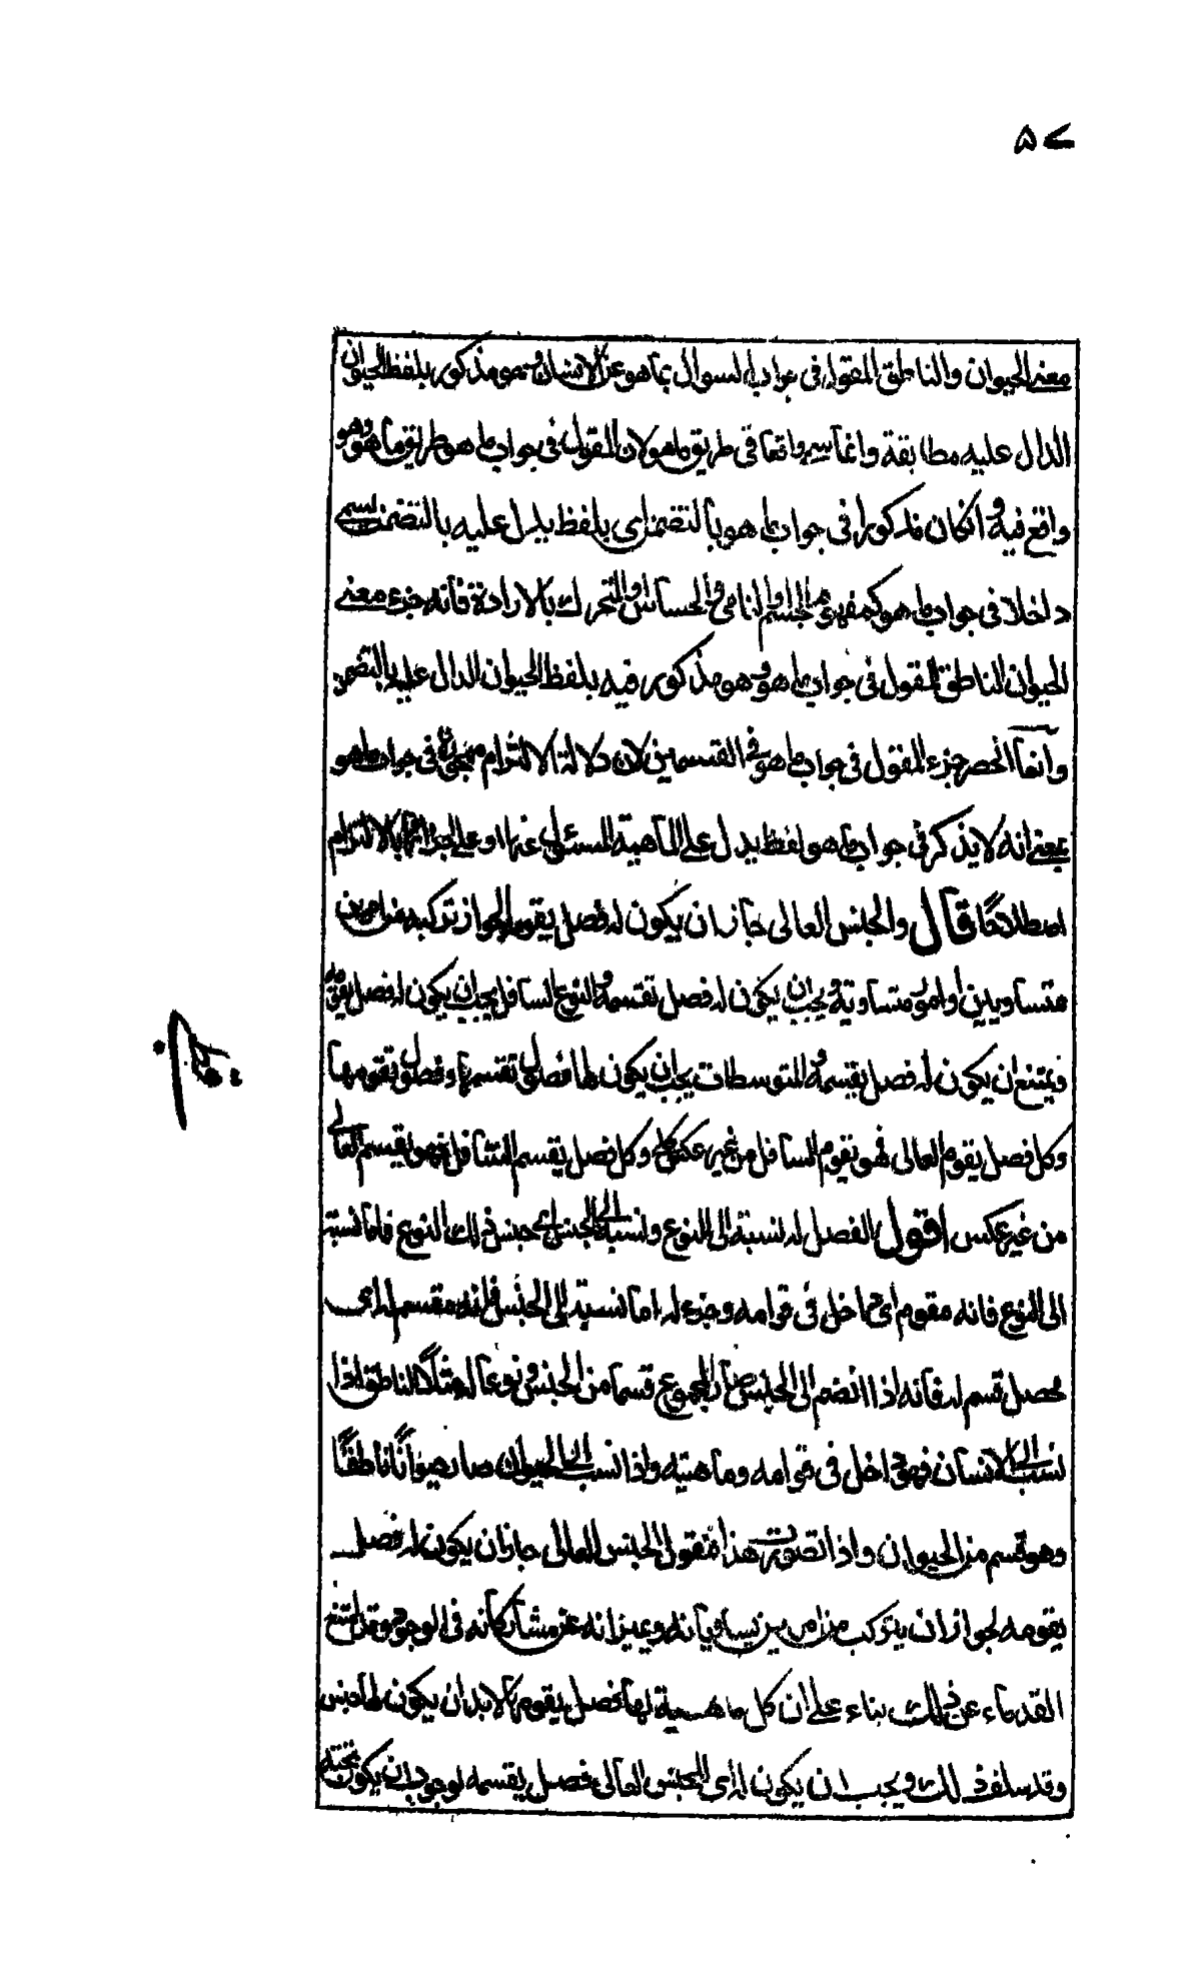 ۵۷
معنى الحيوان والناطق المقول فى جواب السوال بما هو عن الانسان وهو مذكور بلفظ الحيوان
الدال عليه مطابقة وانما سمى واقعا فى طريق ما هو لان المقول فى جواب ما هو طريق ما هو وهو
واقع فيه وانكان مذكورا فى جواب ما هو بالتضمن اى بلفظ يدل عليه بالتضمن يسمى
داخلا فى جواب ما هو كمفهوم الجسم او النامى والحساس والمتحرك بالارادة فانه جزء معنى
الحيوان الناطق المقول فى جواب ما هو وهو مذكور فيه بلفظ الحيوان الدال عليه بالتضمن
وانما انحصر جزء المقول فى جواب ما هو فى القسمين لان دلالة الالتزام مهجورة فى جواب ما هو
بمعنى انه لا يذكر فى جواب ما هو لفظ يدل على الماهية المسئول عنها او على اجزائها بالالتزام
اصطلاحًا قال والجنس العالى جاز ان يكون له فصل يقومه لجواز تركبه من امرين
متساويين او امور متساوية ويجب ان يكون له فصل تقسمه والنوع السافل يجب ان يكون له فصل يقومه
ويمتنع ان يكون له فصل يقسمه والمتوسطات يجب ان يكون لها فصول تقسمها وفصول تقومها
وكل فصل يقوم العالى فهو يقوم السافل من غير عكس كلى وكل فصل يقسم السافل فهو يقسم العالى
من غير عكس اقول الفصل له نسبة الى النوع ونسبة الى الجنس اى جنس ذلك النوع فاما نسبته
الى النوع فانه مقوم اى داخل فى قوامه وجزء له اما نسبته الى الجنس فانه مقسم له اى
محصل قسم له فانه اذا انضم الى الجنس صار المجموع قسما من الجنس ونوعا له مثلًا الناطق اذا
نسب الى الانسان فهو داخل فى قوامه وماهيته واذا نسب الى الحيوان صار حيوانًا ناطقًا
وهو قسم من الحيوان واذا تصورت هذا فنقول الجنس العالى جاز ان يكون له فصل
يقومه لجواز ان يتركب من امرين يساويانه ويميزانه عن مشاركاته فى الوجود وقد امتنع
القدماء عن ذلك بناء على ان كل ماهية لها فصل يقومها لابد ان يكون لها جنس
وقد سلف ذلك ويجب ان يكون له اى للجنس العالى فصل يقسمه لوجوب ان يكون تحته